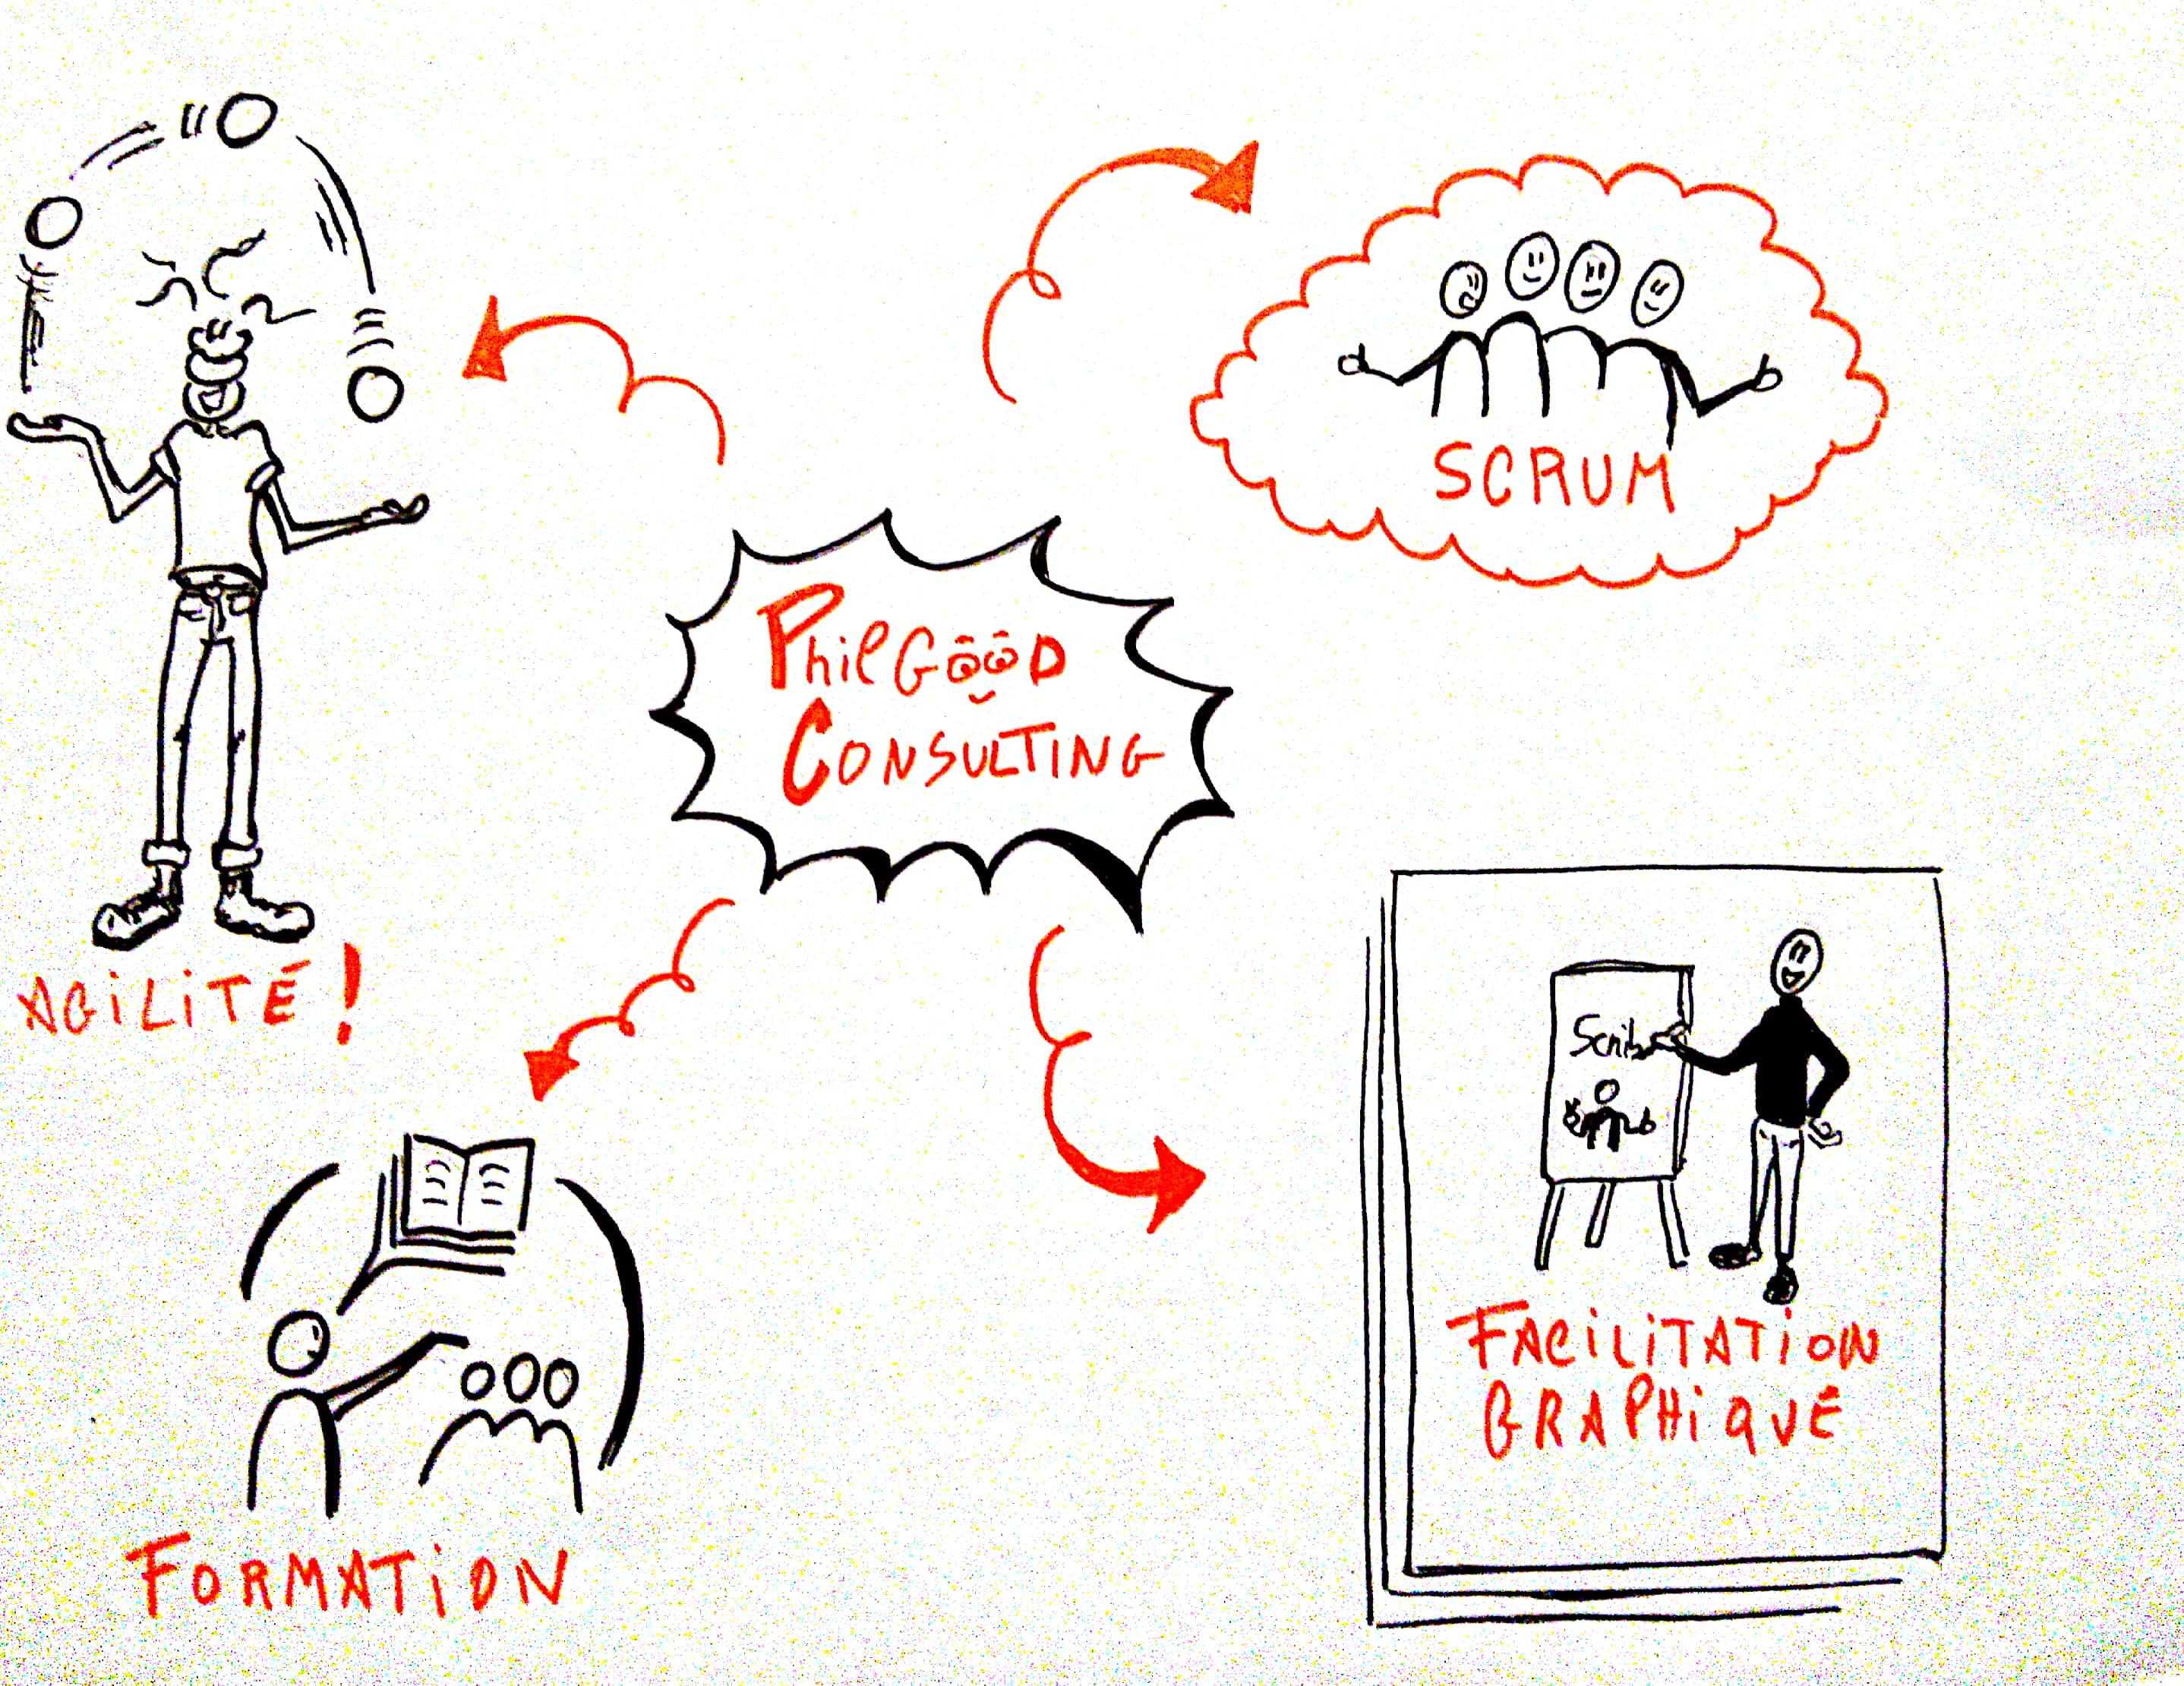 AGiLiTÉ !
SCRUM
PhilGOOD
CONSULTING
FORMATiON
Scrib
FACiLiTATiON
GRAPHiQUE